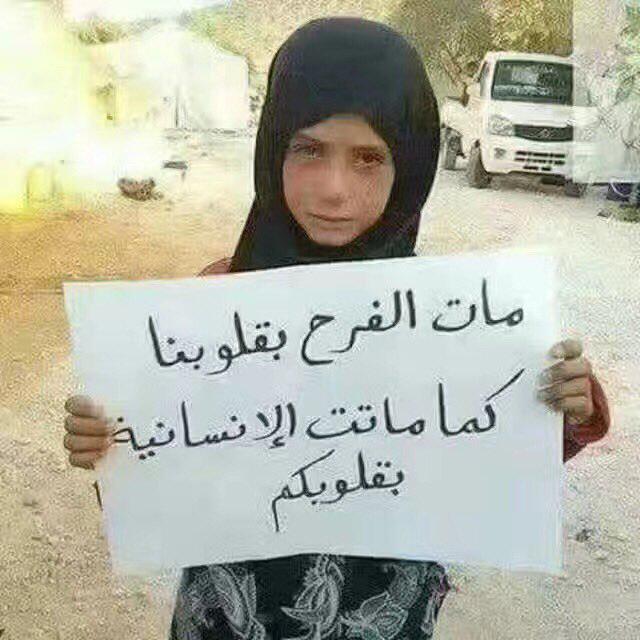 مات الفرح بقلوبنا
كما ماتت الإنسانية
بقلوبكم